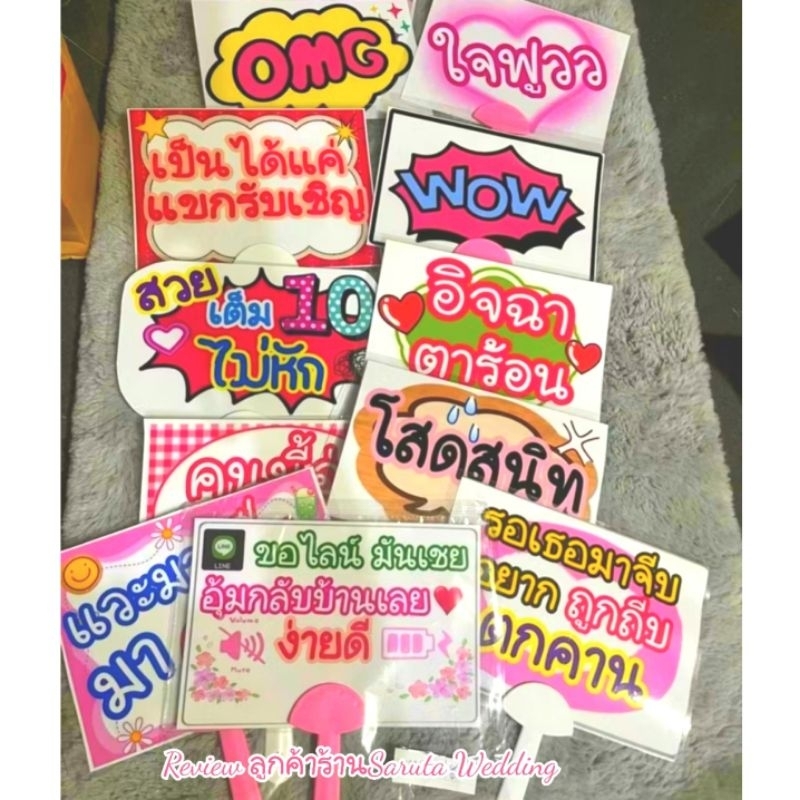 OMG
ใจฟูวว
เป็นได้แค่
แขกรับเชิญ
WOW
สวย
เต็ม 10
ไม่หัก
อิจฉา
ตาร้อน
โสดสนิท
แวะมา
มา
LINE
LINE
ขอไลน์ มันเชย
อุ้มกลับบ้านเลย
Volume
ง่ายดี
Mute
รอเธอมาจีบ
อยาก ถูกถีบ
ตกคาน
Review ลูกค้าร้านSaruta Wedding